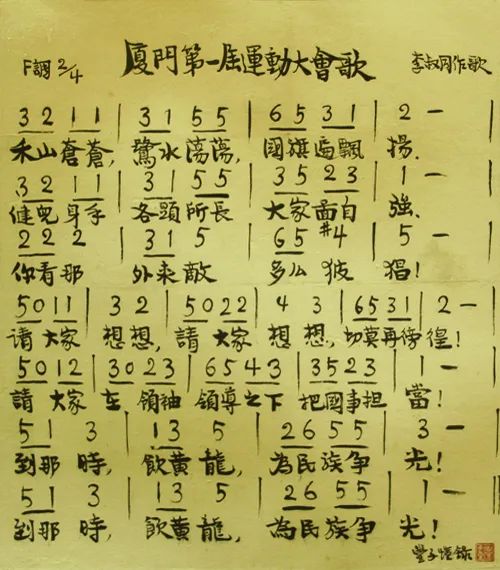 廈門第一屆運動大會歌
F調 2/4
李叔同作歌
3 2 1 1 | 3 1 5 5 | 6 5 3 1 | 2 —
禾山蒼蒼, 鷺水蕩蕩, 國旗遍飄揚.
3 2 1 1 | 3 1 5 5 | 3 5 2 3 | 1 —
健兒身手 各顯所長 大家圖自強.
2 2 2 | 3 1 5 | 6 5 #4 | 5 —
你看那 外來敵 多么狓猖!
5 0 1 1 | 3 2 | 5 0 2 2 | 4 3 | 6 5 3 1 | 2 —
請大家想想, 請大家想想, 切莫再徬徨!
5 0 1 2 | 3 0 2 3 | 6 5 4 3 | 3 5 2 3 | 1 —
請大家在領袖領導之下 把國事担當!
5 1 3 | 1 3 5 | 2 6 5 5 | 3 —
到那時, 飲黃龍, 為民族争光!
5 1 3 | 1 3 5 | 2 6 5 5 | 1 —
到那時, 飲黃龍, 為民族争光!
豐子愷錄